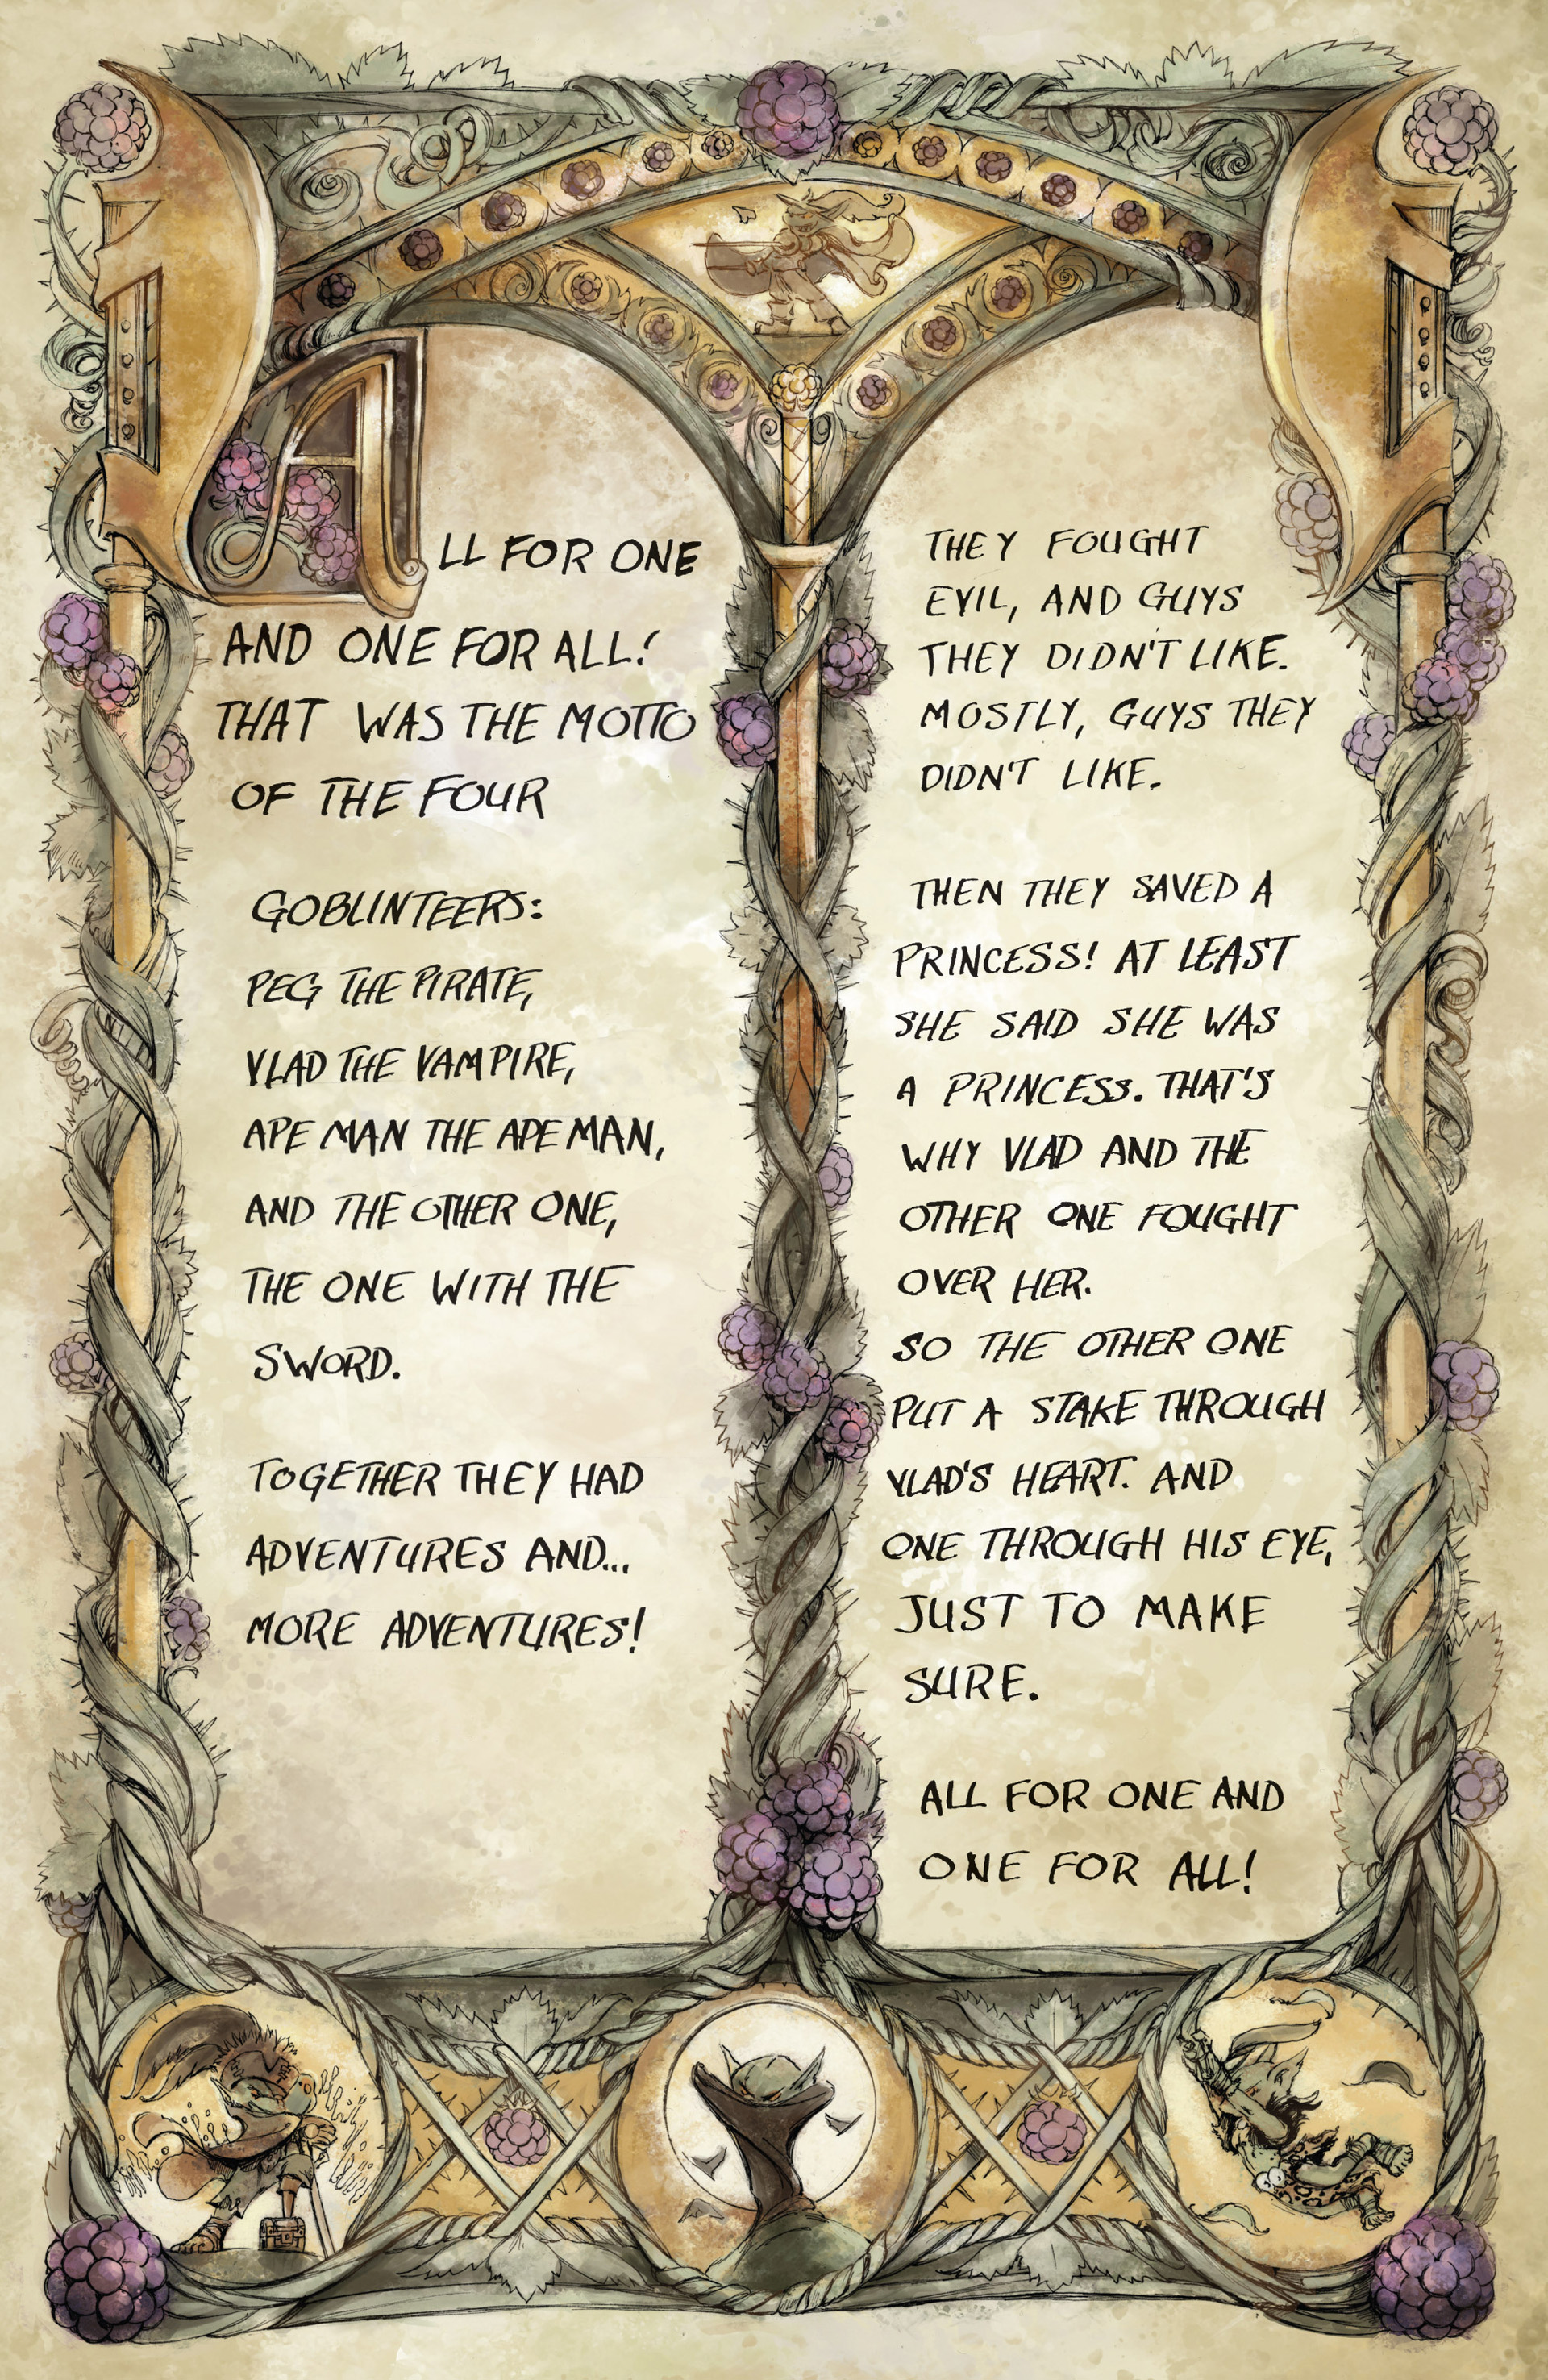 ALL FOR ONE
AND ONE FOR ALL!
THAT WAS THE MOTTO
OF THE FOUR
GOBLINTEERS:
PEG THE PIRATE,
VLAD THE VAMPIRE,
APE MAN THE APE MAN,
AND THE OTHER ONE,
THE ONE WITH THE
SWORD.
TOGETHER THEY HAD
ADVENTURES AND...
MORE ADVENTURES!
THEY FOUGHT
EVIL, AND GUYS
THEY DIDN'T LIKE.
MOSTLY, GUYS THEY
DIDN'T LIKE.
THEN THEY SAVED A
PRINCESS! AT LEAST
SHE SAID SHE WAS
A PRINCESS. THAT'S
WHY VLAD AND THE
OTHER ONE FOUGHT
OVER HER.
SO THE OTHER ONE
PUT A STAKE THROUGH
VLAD'S HEART. AND
ONE THROUGH HIS EYE,
JUST TO MAKE
SURE.
ALL FOR ONE AND
ONE FOR ALL!